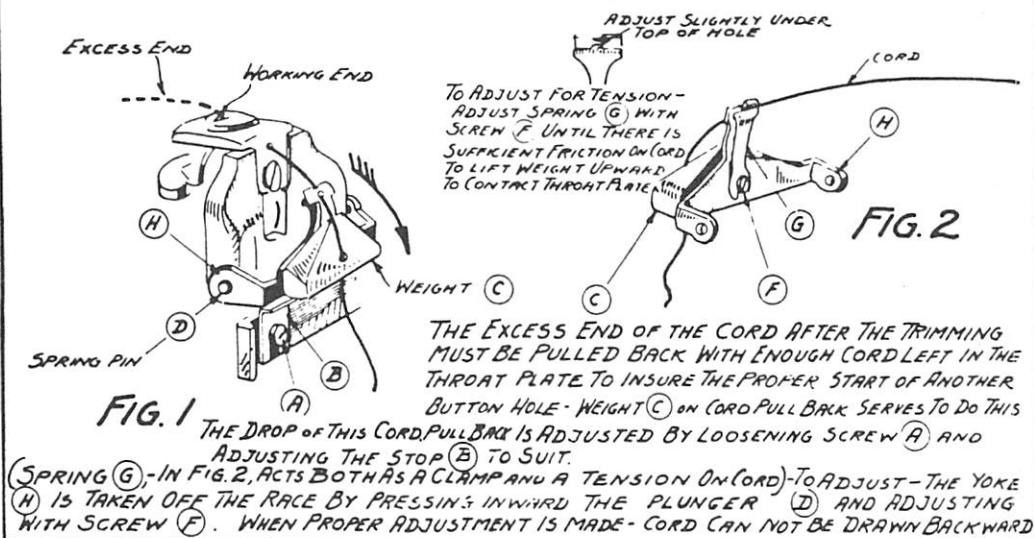 EXCESS END
WORKING END
H
D
SPRING PIN
WEIGHT C
B
A
FIG. 1
ADJUST SLIGHTLY UNDER
TOP OF HOLE
TO ADJUST FOR TENSION-
ADJUST SPRING G WITH
SCREW F UNTIL THERE IS
SUFFICIENT FRICTION ON CORD
TO LIFT WEIGHT UPWARD
TO CONTACT THROAT PLATE
CORD
H
G
F
C
FIG. 2
THE EXCESS END OF THE CORD AFTER THE TRIMMING
MUST BE PULLED BACK WITH ENOUGH CORD LEFT IN THE
THROAT PLATE TO INSURE THE PROPER START OF ANOTHER
BUTTON HOLE - WEIGHT C ON CORD PULL BACK SERVES TO DO THIS
THE DROP OF THIS CORD, PULL BACK IS ADJUSTED BY LOOSENING SCREW A AND
ADJUSTING THE STOP B TO SUIT.
(SPRING G,-IN FIG. 2, ACTS BOTH AS A CLAMP AND A TENSION ON CORD)-TO ADJUST-THE YOKE
H IS TAKEN OFF THE RACE BY PRESSING INWARD THE PLUNGER D AND ADJUSTING
WITH SCREW F. WHEN PROPER ADJUSTMENT IS MADE - CORD CAN NOT BE DRAWN BACKWARD